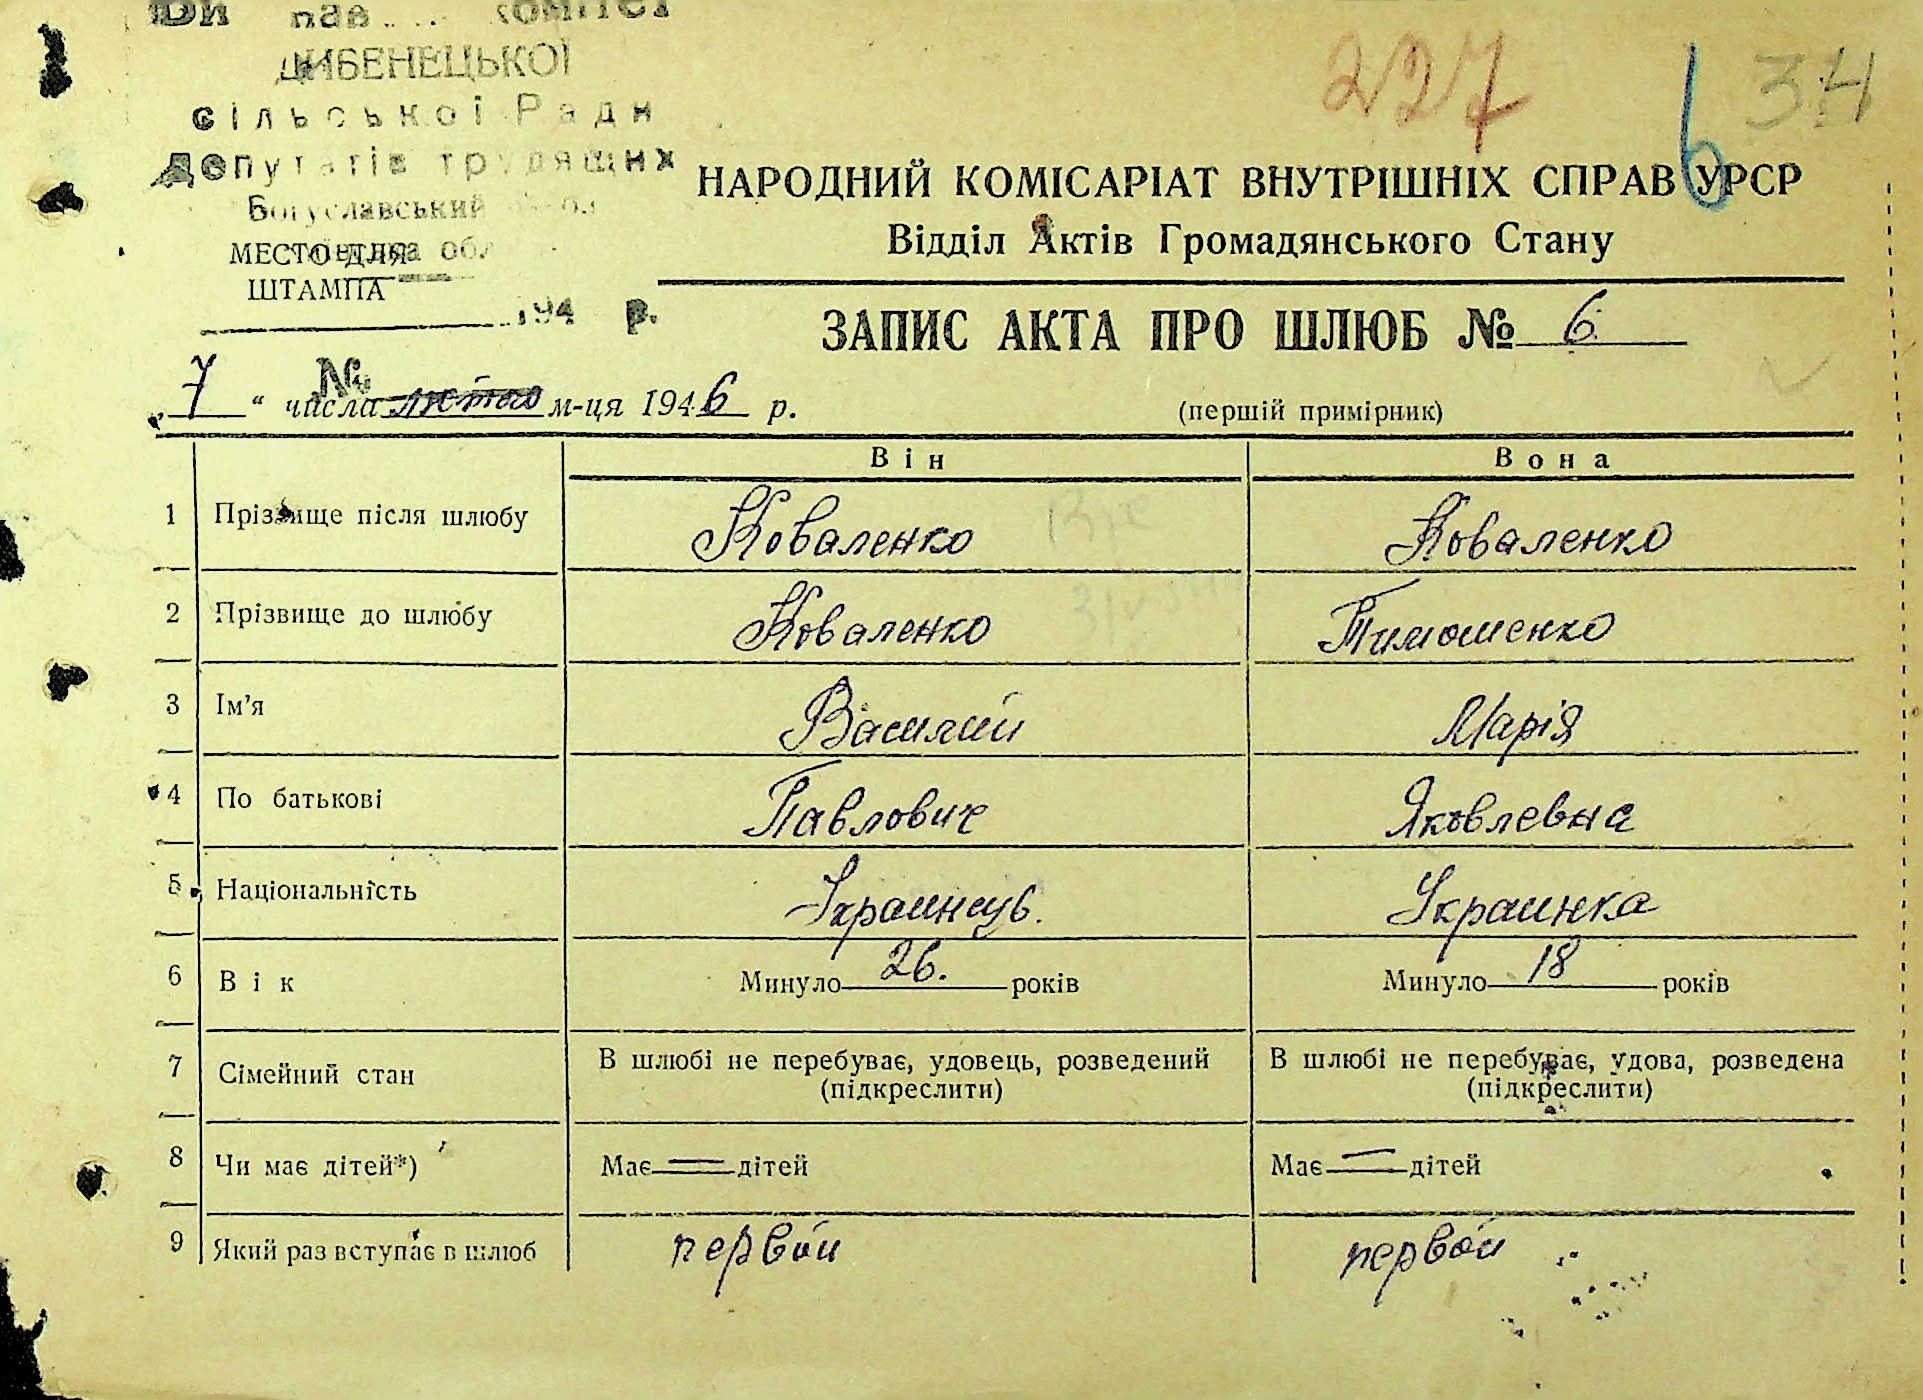 227 6 34
ДИБЕНЕЦЬКОЇ
сільської Ради
депутатів трудящих
Богуславський
МЕСТО ДЛЯ
ШТАМПА
194 р.
№
НАРОДНИЙ КОМІСАРІАТ ВНУТРІШНІХ СПРАВ УРСР
Відділ Актів Громадянського Стану
ЗАПИС АКТА ПРО ШЛЮБ № 6
„ 7 “ числа лютого м-ця 1946 р. (першій примірник)
Він Вона
1 Прізвище після шлюбу Коваленко Коваленко
2 Прізвище до шлюбу Коваленко Тимошенко
3 Ім'я Василий Марія
4 По батькові Павлович Яковлевна
5 Національність Украинець. Украинка
6 Вік Минуло 26. років Минуло 18 років
7 Сімейний стан В шлюбі не перебуває, удовець, розведений В шлюбі не перебуває, удова, розведена
(підкреслити) (підкреслити)
8 Чи має дітей*) Має — дітей Має — дітей
9 Який раз вступає в шлюб первой первой